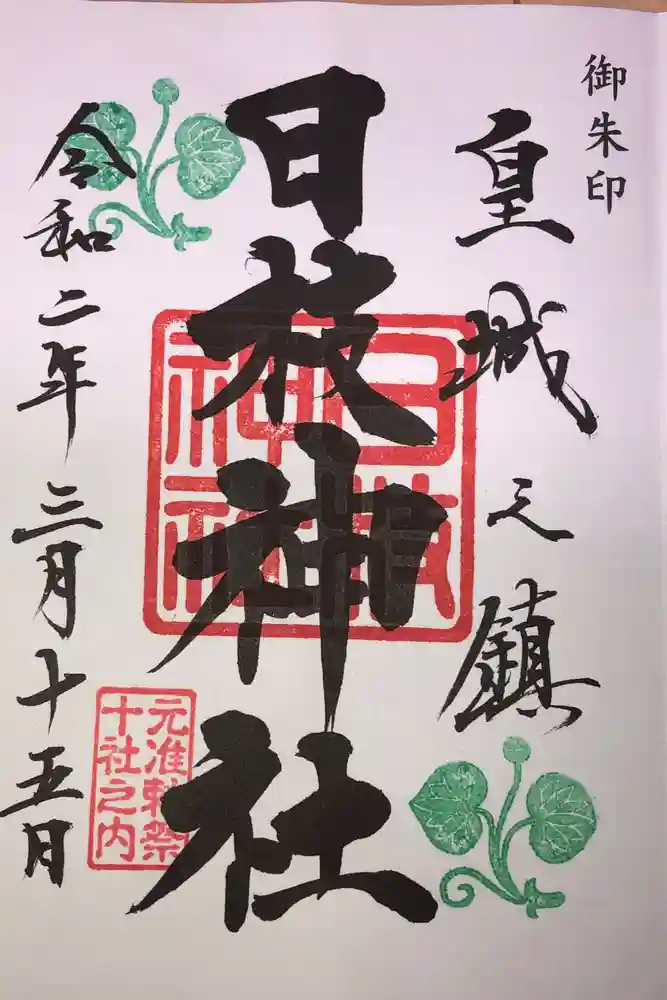 御朱印
皇城之鎮
日枝神社
日枝
神社
元准勅祭
十社之内
令和二年三月十五日